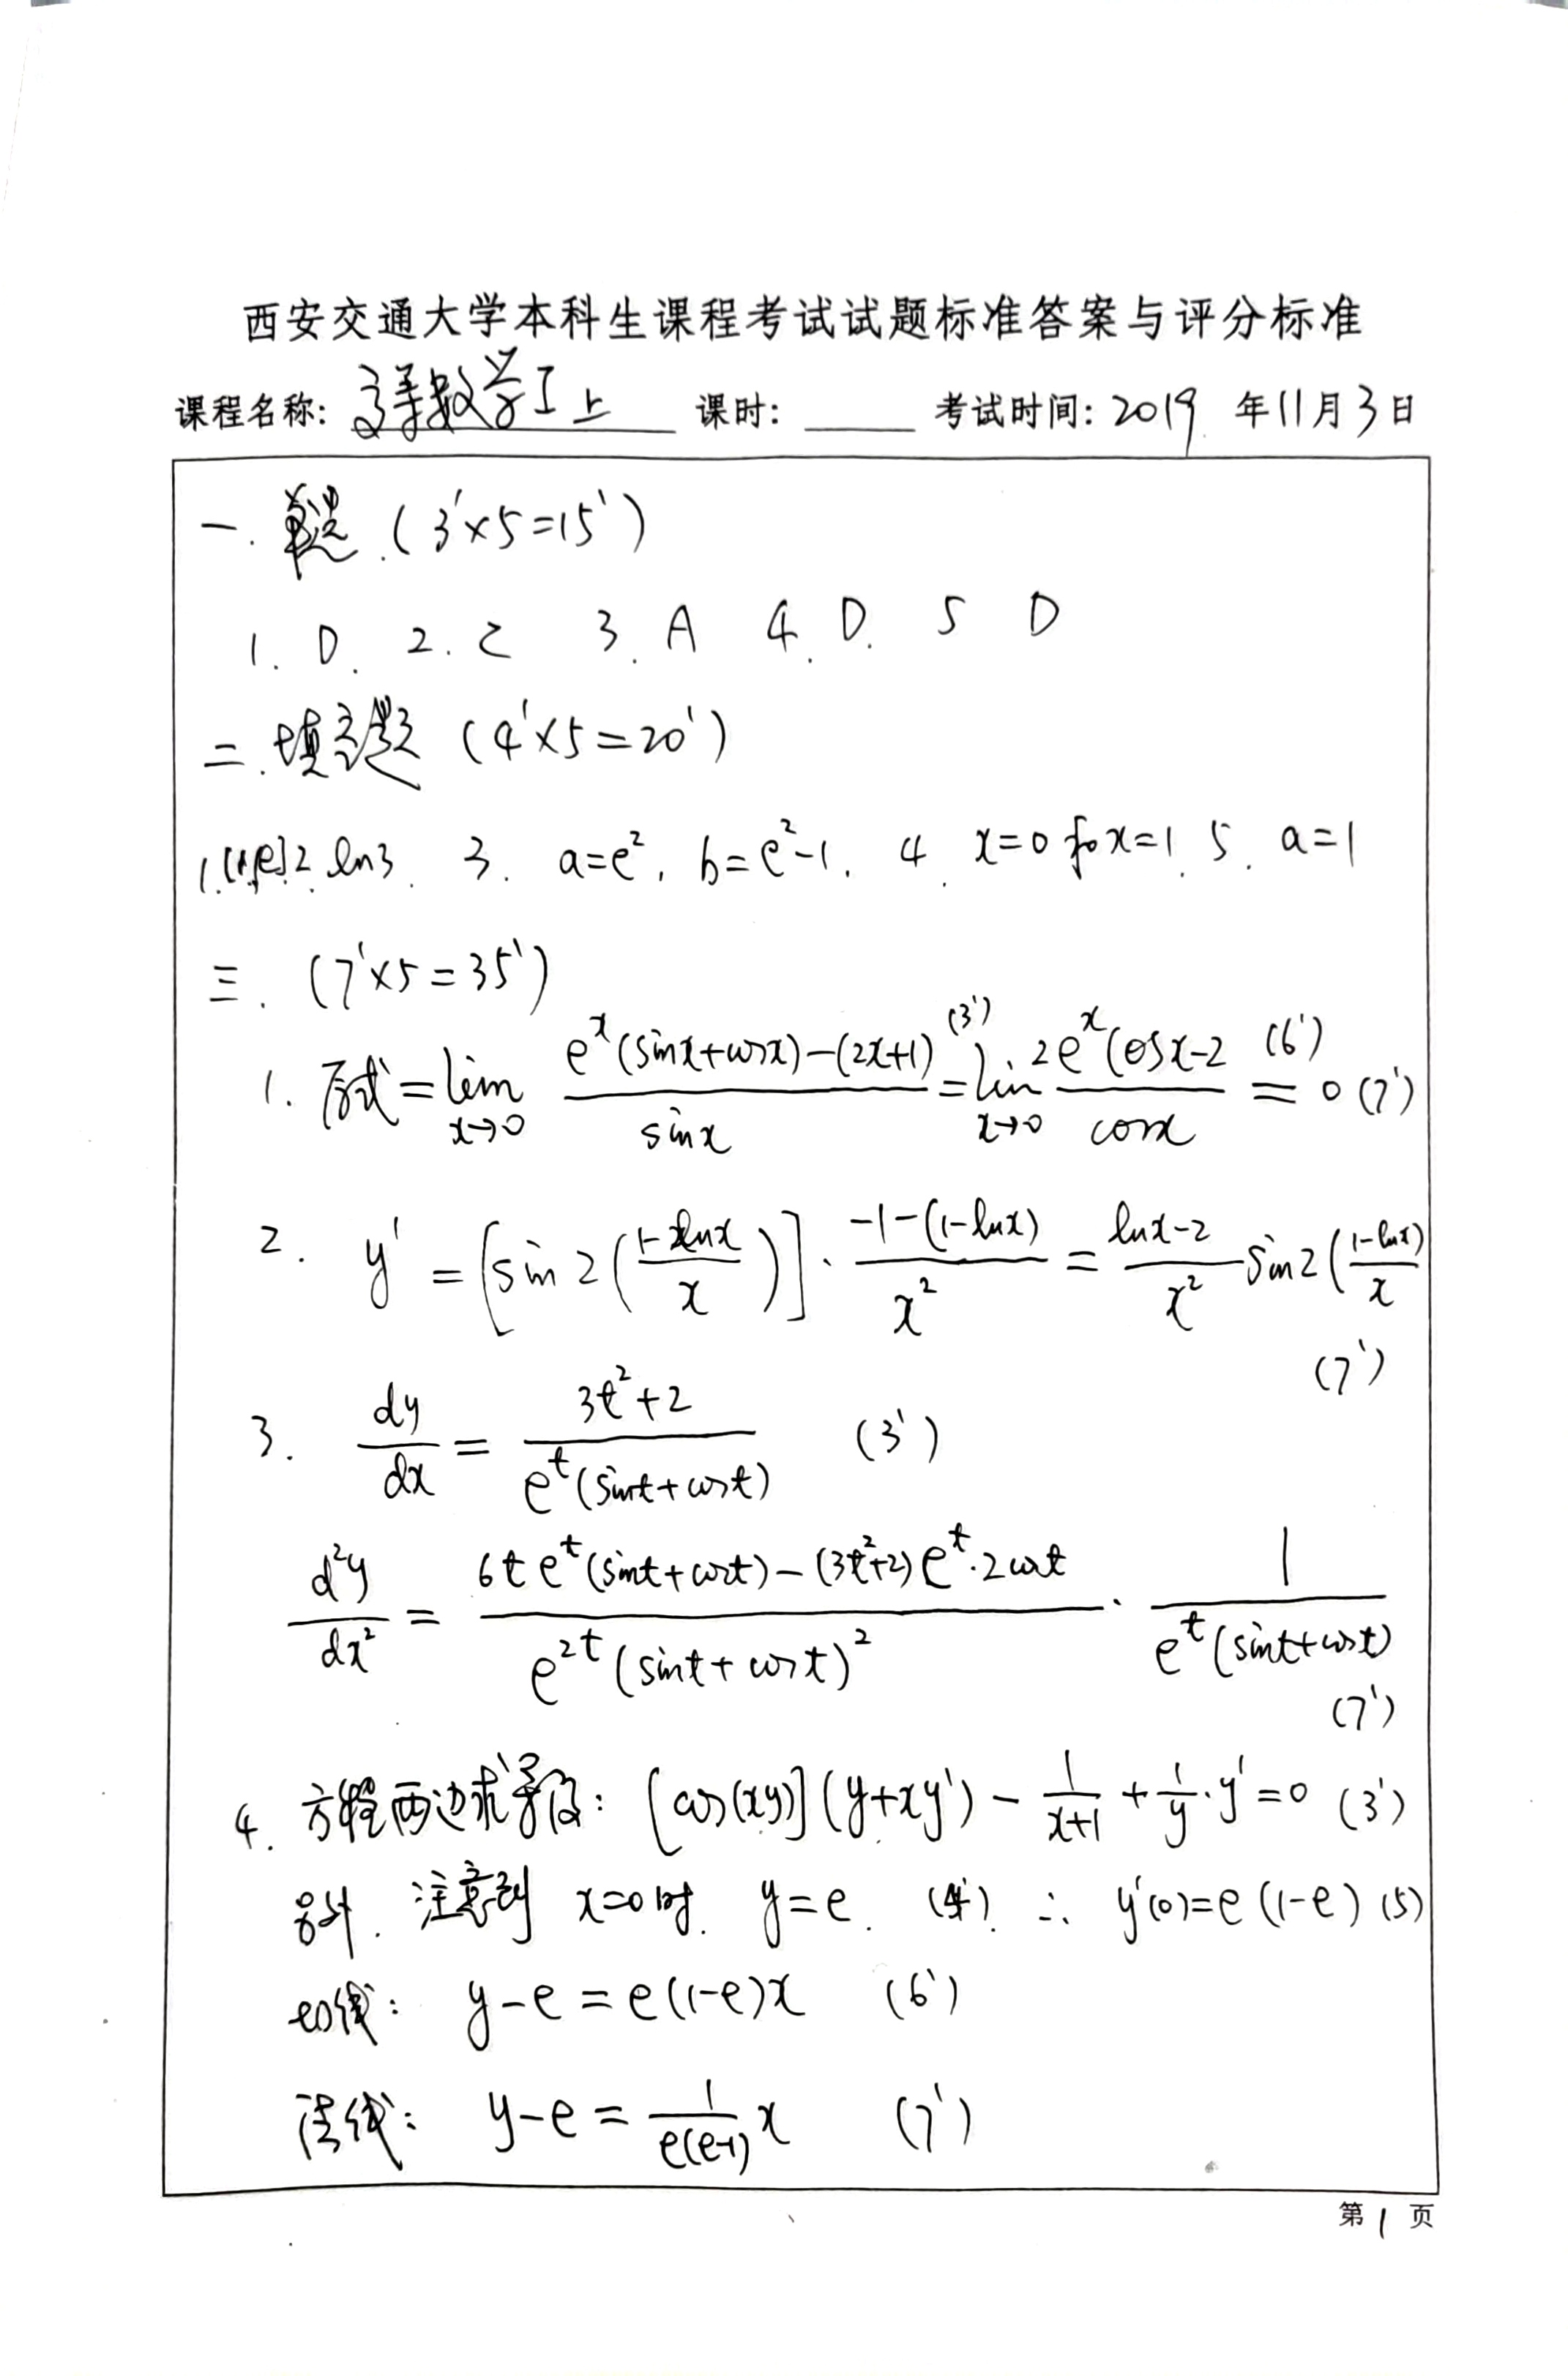 西安交通大学本科生课程考试试题标准答案与评分标准
课程名称: 高等数学I上 课时: 考试时间: 2019 年11月3日
一. 单选. (3'×5=15')
1. D. 2. C 3. A 4. D. 5 D
二. 填空题 (4'×5=20')
1. (1,e] 2. ln3. 3. a=e², b=e²-1. 4. x=0和x=1. 5. a=1
三. (7'×5=35')
1. 原式=lim_{x→0} (e^x(sinx+cosx)-(2x+1))/sinx (3') =lim_{x→0} (2e^x cosx-2)/cosx (6') = 0 (7')
2. y' = [sin2((1-lnx)/x)]·(-1-(1-lnx))/x² = (lnx-2)/x² sin2((1-lnx)/x
(7')
3. dy/dx = (3t²+2)/(e^t(sint+cost)) (3')
d²y/dx² = (6te^t(sint+cost)-(3t²+2)e^t·2cost)/(e^{2t}(sint+cost)²)·1/(e^t(sint+cost))
(7')
4. 方程两边求导得: [cos(xy)](y+xy')-1/(x+1)+1/y·y'=0 (3')
另外. 注意到 x=0时. y=e. (4'). ∴ y'(0)=e(1-e) (5)
切线: y-e=e(1-e)x (6')
法线: y-e=1/(e(e-1))x (7')
第1页